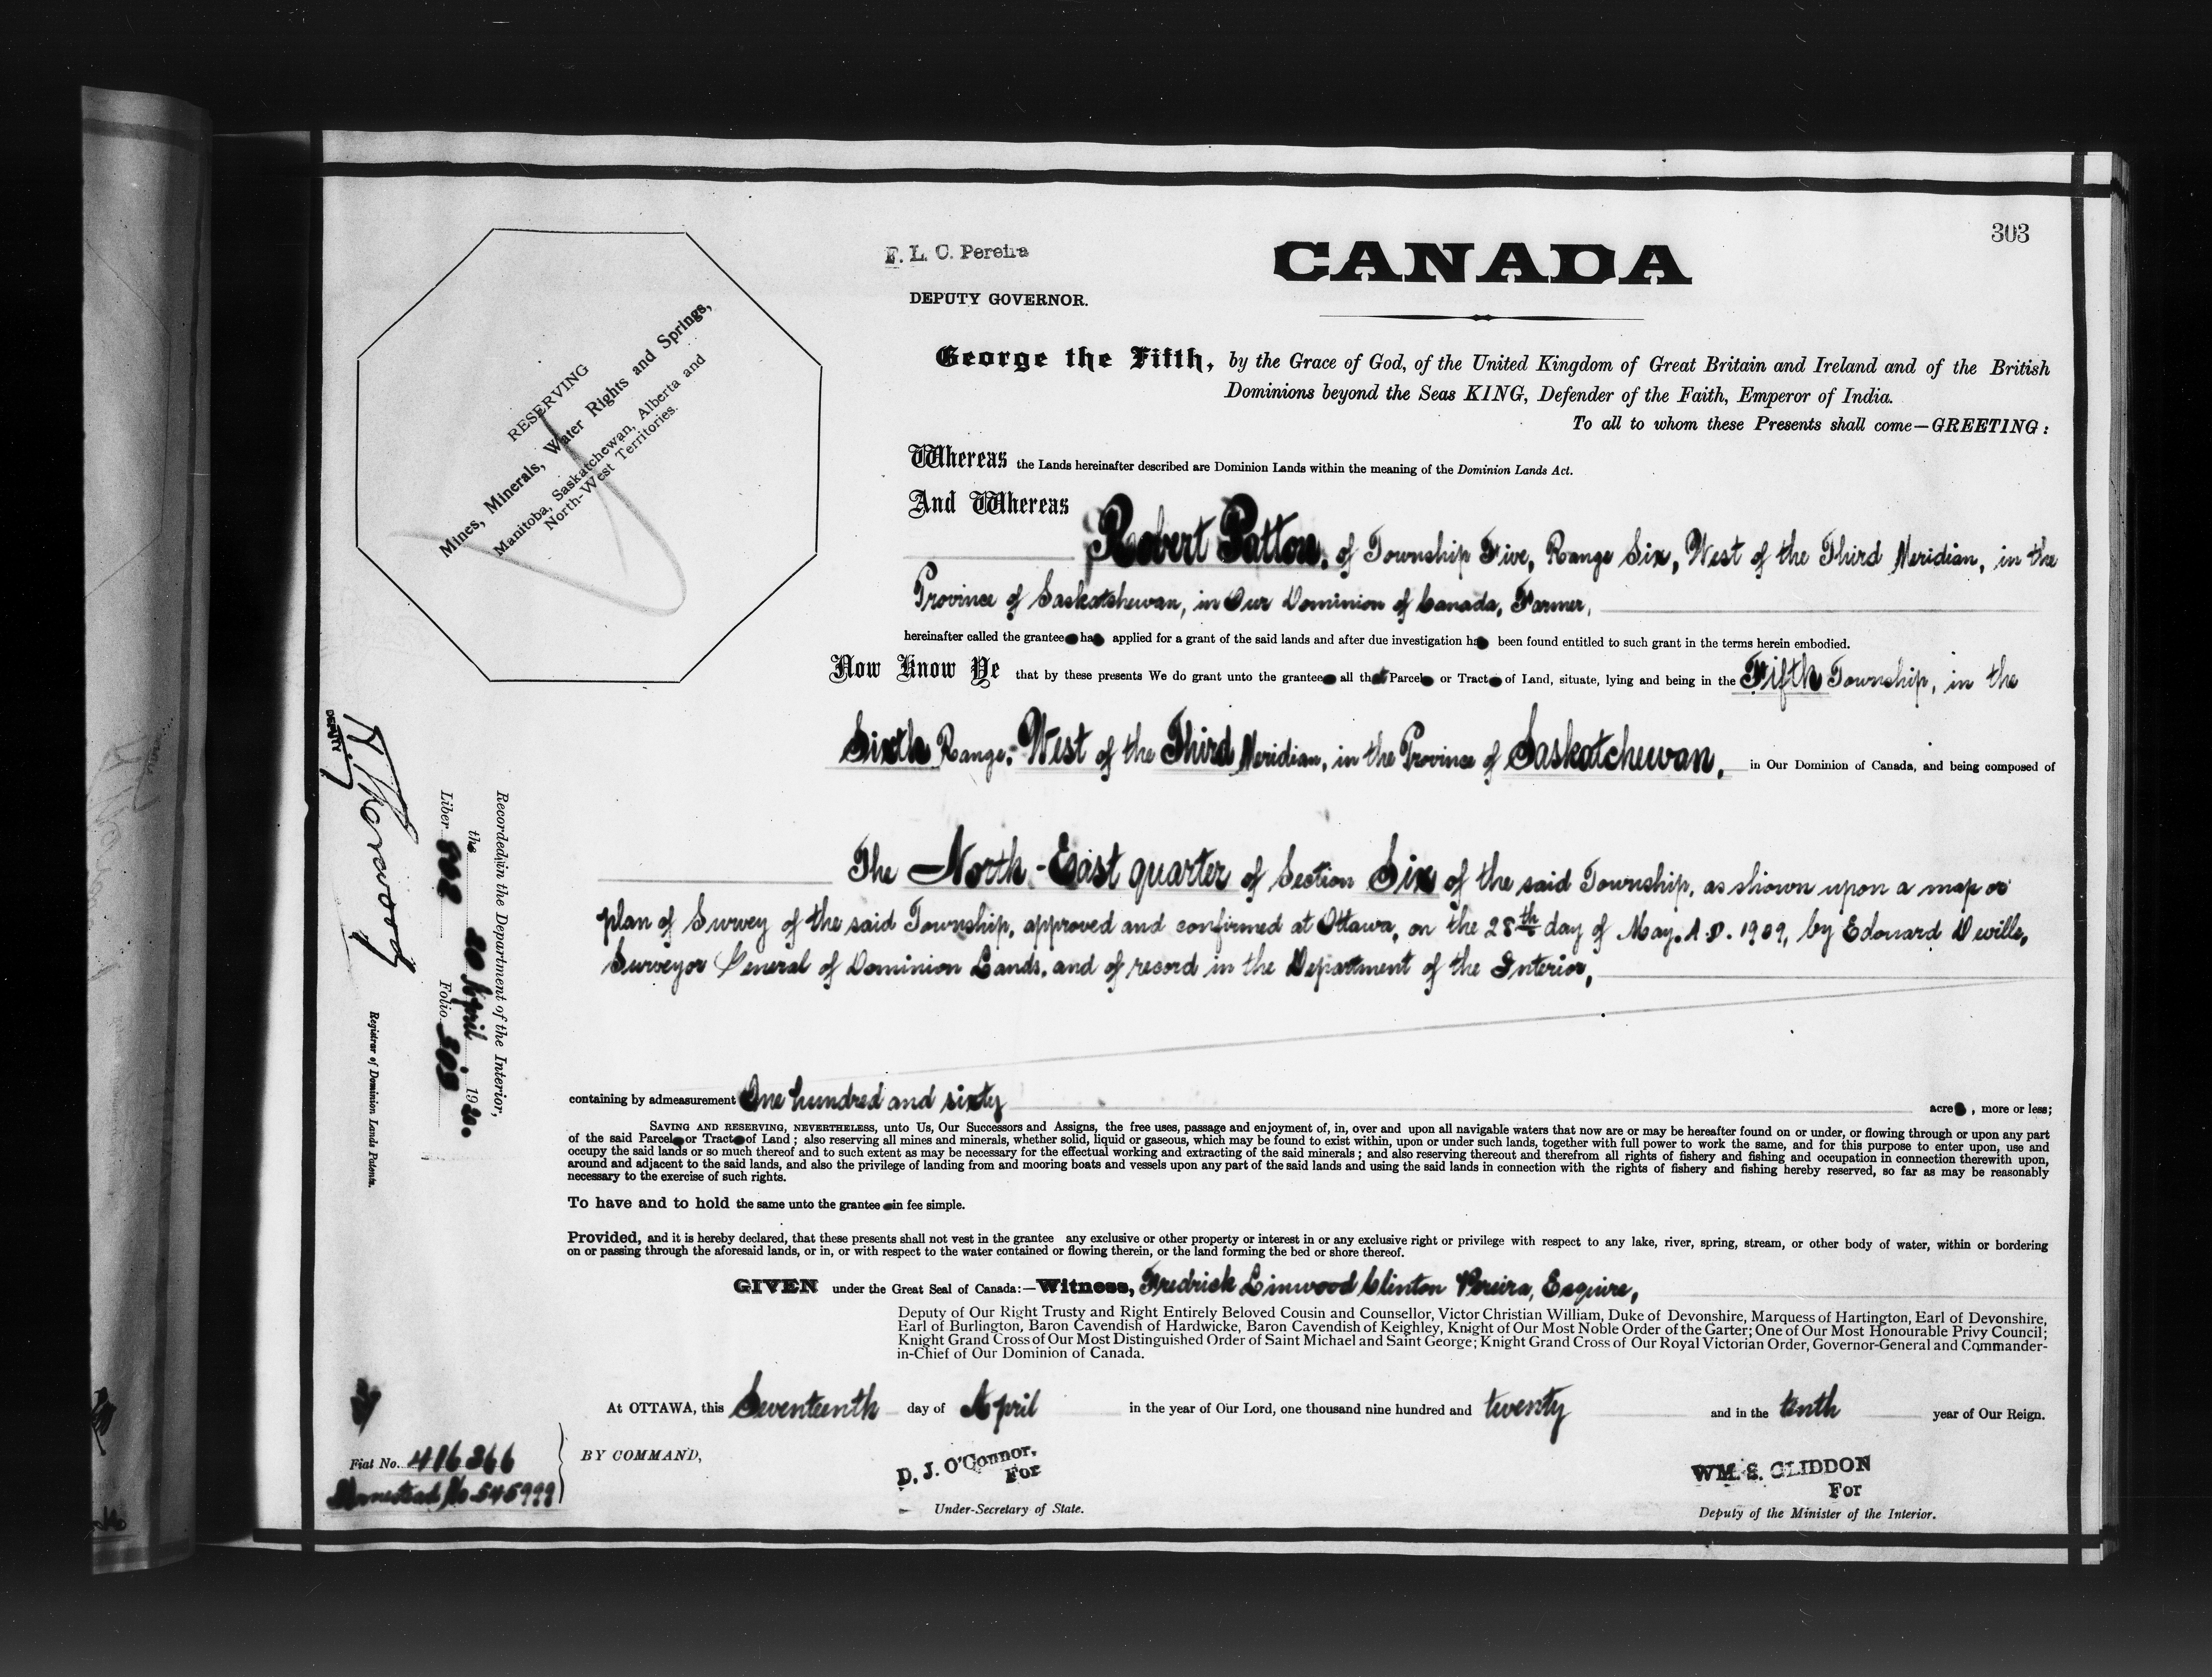 303
F. L. C. Pereira
CANADA
DEPUTY GOVERNOR.
RESERVING
Mines, Minerals, Water Rights and Springs,
Manitoba, Saskatchewan, Alberta and
North-West Territories.
George the Fifth, by the Grace of God, of the United Kingdom of Great Britain and Ireland and of the British
Dominions beyond the Seas KING, Defender of the Faith, Emperor of India.
To all to whom these Presents shall come—GREETING:
Whereas the Lands hereinafter described are Dominion Lands within the meaning of the Dominion Lands Act.
And Whereas
Robert Patton, of Township Five, Range Six, West of the Third Meridian, in the
Province of Saskatchewan, in Our Dominion of Canada, Farmer,
hereinafter called the grantee ha applied for a grant of the said lands and after due investigation ha been found entitled to such grant in the terms herein embodied.
Now Know Ye that by these presents We do grant unto the grantee all that Parcel or Tract of Land, situate, lying and being in the Fifth Township, in the
Sixth Range, West of the Third Meridian, in the Province of Saskatchewan, in Our Dominion of Canada, and being composed of
The North-East quarter of Section Six of the said Township, as shown upon a map or
plan of Survey of the said Township, approved and confirmed at Ottawa, on the 28th day of May, A.D. 1909, by Edouard Deville,
Surveyor General of Dominion Lands, and of record in the Department of the Interior,
containing by admeasurement One hundred and sixty acre , more or less;
SAVING AND RESERVING, NEVERTHELESS, unto Us, Our Successors and Assigns, the free uses, passage and enjoyment of, in, over and upon all navigable waters that now are or may be hereafter found on or under, or flowing through or upon any part
of the said Parcel or Tract of Land; also reserving all mines and minerals, whether solid, liquid or gaseous, which may be found to exist within, upon or under such lands, together with full power to work the same, and for this purpose to enter upon, use and
occupy the said lands or so much thereof and to such extent as may be necessary for the effectual working and extracting of the said minerals; and also reserving thereout and therefrom all rights of fishery and fishing and occupation in connection therewith upon,
around and adjacent to the said lands, and also the privilege of landing from and mooring boats and vessels upon any part of the said lands and using the said lands in connection with the rights of fishery and fishing hereby reserved, so far as may be reasonably
necessary to the exercise of such rights.
To have and to hold the same unto the grantee in fee simple.
Provided, and it is hereby declared, that these presents shall not vest in the grantee any exclusive or other property or interest in or any exclusive right or privilege with respect to any lake, river, spring, stream, or other body of water, within or bordering
on or passing through the aforesaid lands, or in, or with respect to the water contained or flowing therein, or the land forming the bed or shore thereof.
GIVEN under the Great Seal of Canada:—Witness, Fredrick Linwood Clinton Pereira, Esquire,
Deputy of Our Right Trusty and Right Entirely Beloved Cousin and Counsellor, Victor Christian William, Duke of Devonshire, Marquess of Hartington, Earl of Devonshire,
Earl of Burlington, Baron Cavendish of Hardwicke, Baron Cavendish of Keighley, Knight of Our Most Noble Order of the Garter; One of Our Most Honourable Privy Council;
Knight Grand Cross of Our Most Distinguished Order of Saint Michael and Saint George; Knight Grand Cross of Our Royal Victorian Order, Governor-General and Commander-
in-Chief of Our Dominion of Canada.
At OTTAWA, this Seventeenth day of April in the year of Our Lord, one thousand nine hundred and twenty and in the tenth year of Our Reign.
BY COMMAND,
D. J. O'Connor,
For
Under-Secretary of State.
WM. S. GLIDDON
For
Deputy of the Minister of the Interior.
Recorded in the Department of the Interior,
the 20 April, 1920.
Liber Folio 303
DEPUTY
Registrar of Dominion Lands Patents.
Fiat No. 416366
Homestead No 545999